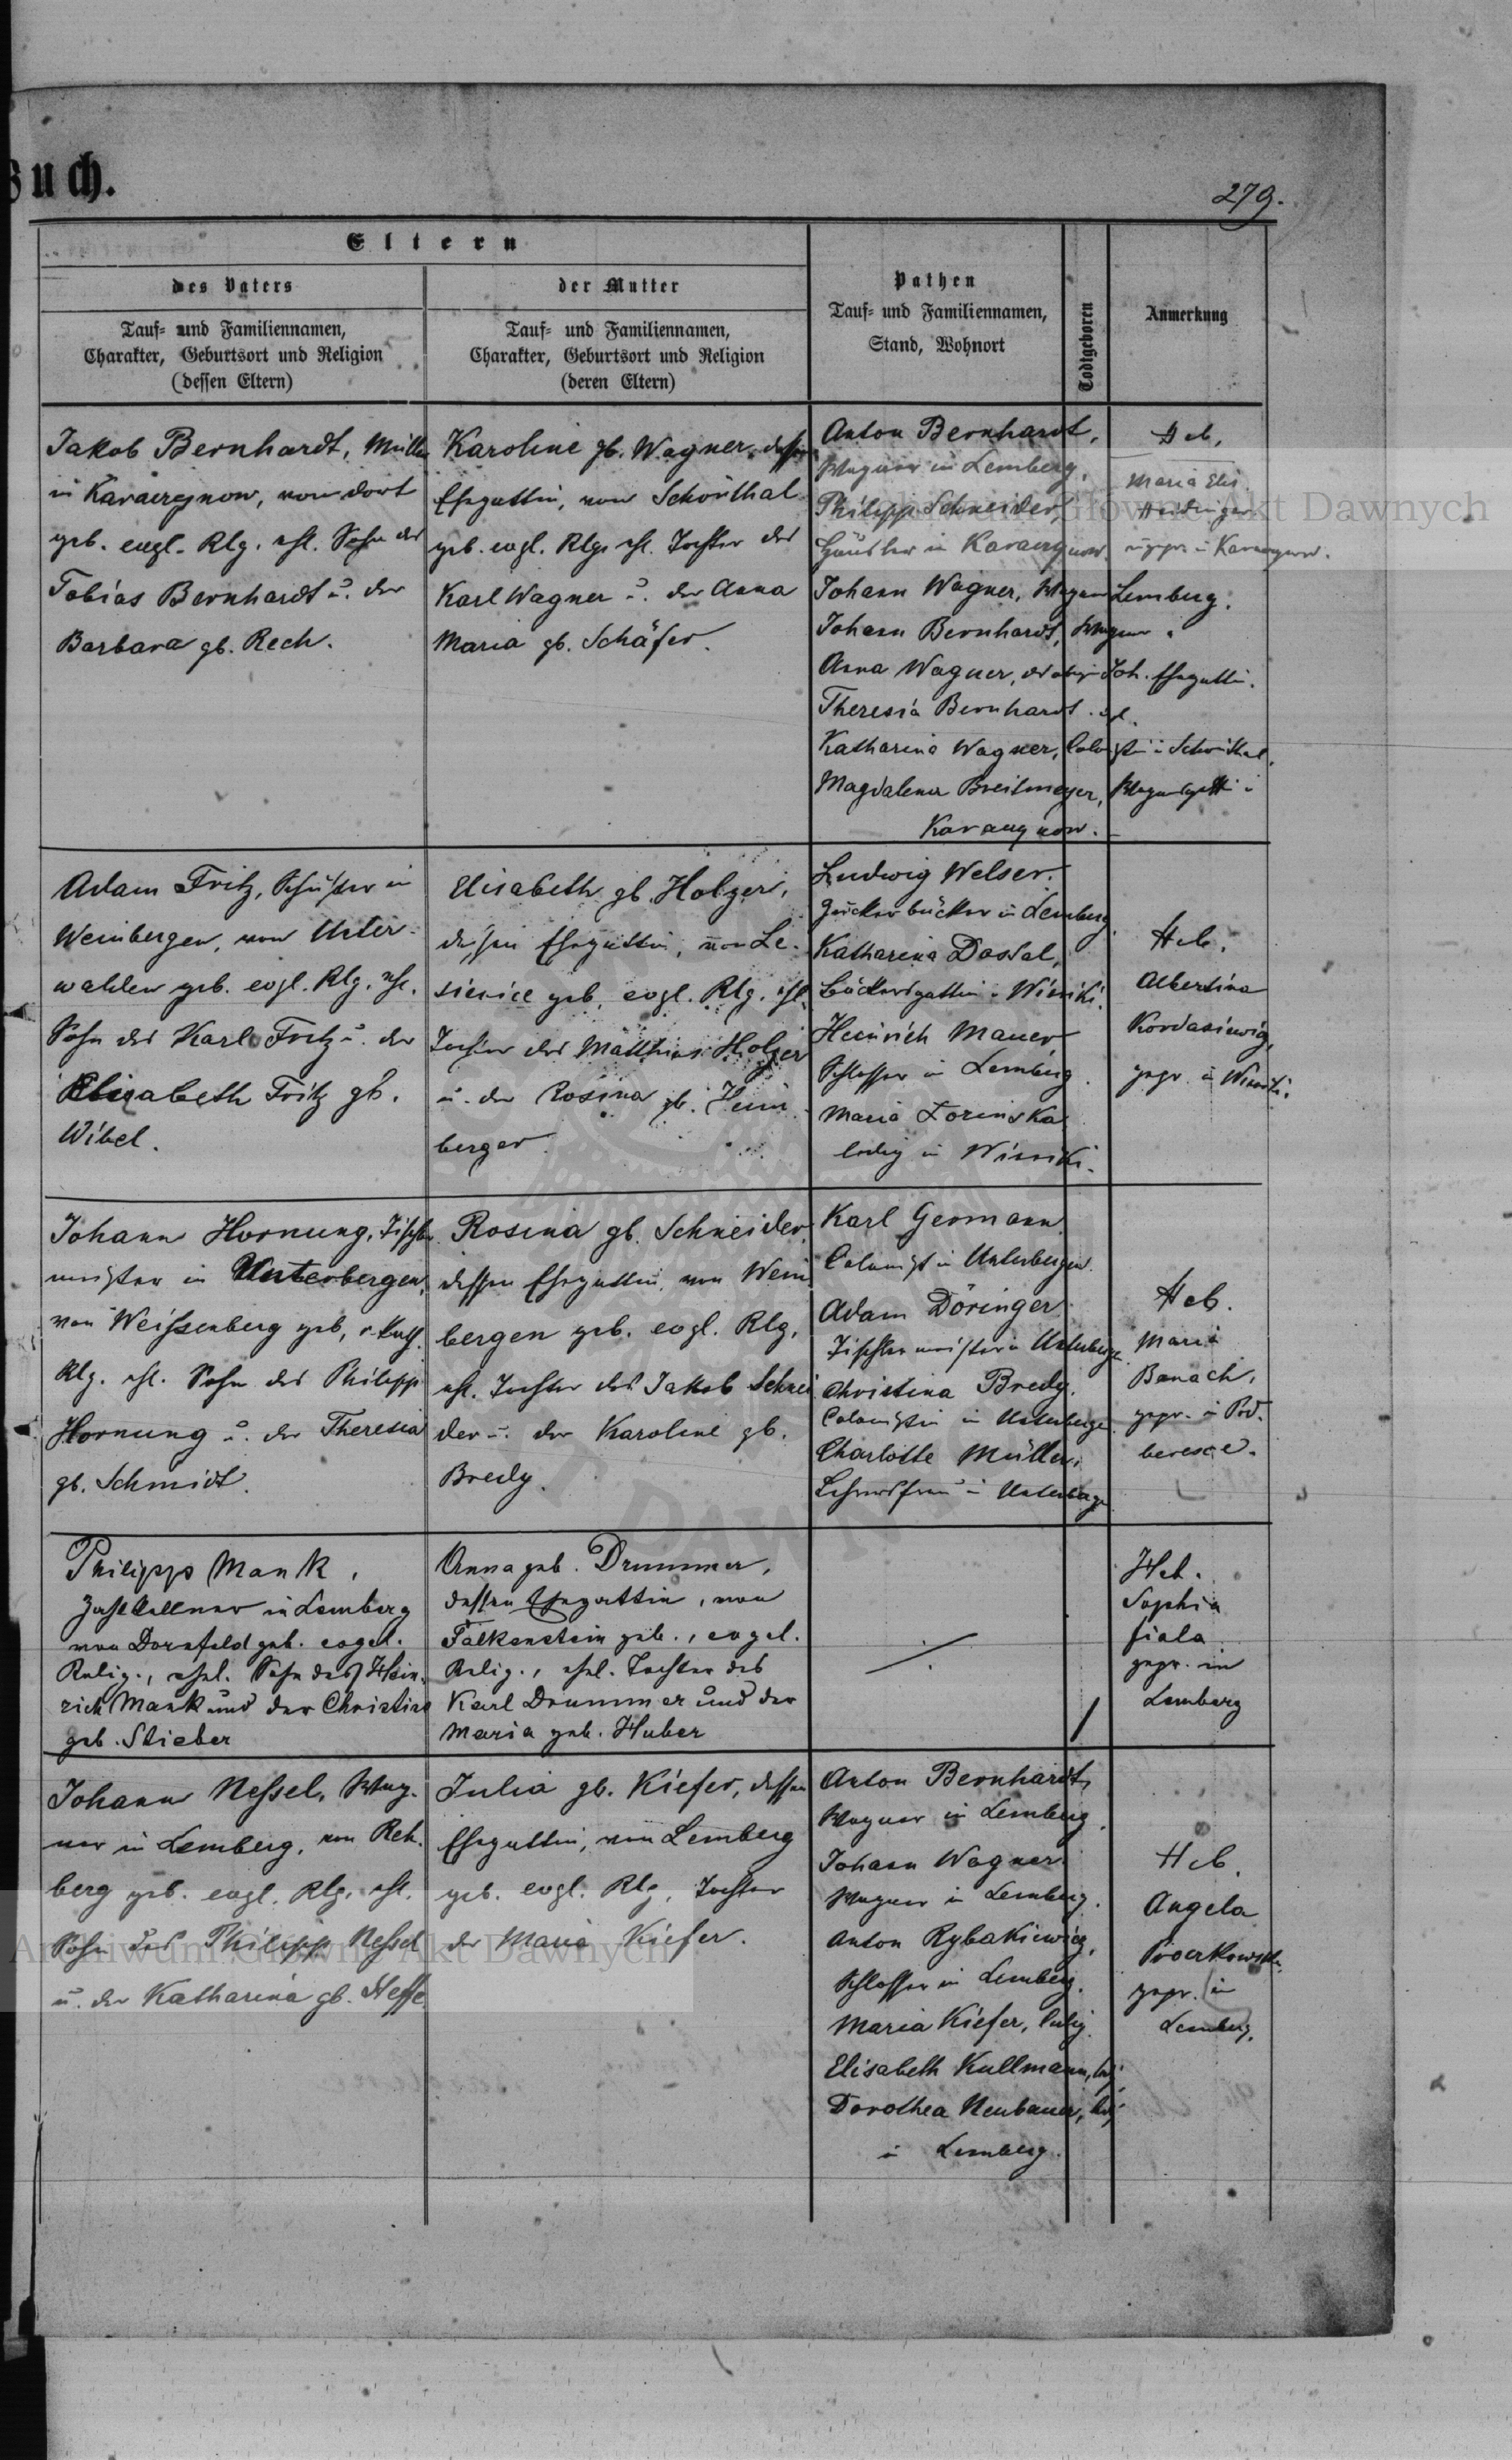 Buch.
279.
Eltern
des Vaters
der Mutter
Pathen
Todtgeboren
Anmerkung
Tauf- und Familiennamen,
Charakter, Geburtsort und Religion
(dessen Eltern)
Tauf- und Familiennamen,
Charakter, Geburtsort und Religion
(deren Eltern)
Tauf- und Familiennamen,
Stand, Wohnort
Jakob Bernhardt, Müller
in Karaczynow, von dort
geb. evgl. Rlg. ehl. Sohn des
Tobias Bernhardt u. der
Barbara gb. Rech.
Karoline gb. Wagner, dessen
Ehegattin, von Schönthal
geb. evgl. Rlg. ehl. Tochter des
Karl Wagner u. der Anna
Maria gb. Schäfer.
Anton Bernhardt,
Wagner in Lemberg.
Philipp Schneider,
Häusler in Karaczynow.
Johann Wagner, Wagner Lemberg.
Johann Bernhardt, Wagner "
Anna Wagner, des obigen Joh. Ehegattin.
Theresia Bernhardt
Katharina Wagner, Colonistin in Schönthal.
Magdalena Breitmeyer, Wagnersgattin in
Karaczynow.
Heb.
Maria Elis.
Heidinger
ungepr. in Karaczynow.
Adam Fritz, Schuster in
Weinbergen, von Unter-
walden geb. evgl. Rlg. ehl.
Sohn des Karl Fritz u. der
Elisabeth Fritz gb.
Wibel.
Elisabeth gb. Holzer,
dessen Ehegattin, von Le-
sienice geb. evgl. Rlg. ehl.
Tochter des Matthias Holzer
u. der Rosina gb. Heim-
berger.
Ludwig Welser,
Zuckerbäcker in Lemberg.
Katharina Dostal,
Bäckersgattin in Winniki.
Heinrich Mauer
Schlosser in Lemberg.
Maria Zorinska
ledig in Winniki.
Heb.
Albertina
Kordasiewicz,
gepr. in Winniki.
Johann Hornung, Tischler-
meister in Unterbergen,
von Weissenberg geb., r. kath.
Rlg. ehl. Sohn des Philipp
Hornung u. der Theresia
gb. Schmidt.
Rosina gb. Schneider,
dessen Ehegattin, von Wein-
bergen geb. evgl. Rlg.
ehl. Tochter des Jakob Schnei-
der u. der Karoline gb.
Bredy.
Karl Germann
Colonist in Unterbergen.
Adam Döringer
Tischlermeister in Unterbergen
Christina Bredy.
Colonistin in Unterbergen
Charlotte Müller,
Lehrersfrau in Unterbergen
Heb.
Maria
Banach,
gepr. in Pod-
beresce.
Philipp Mank,
Zahlkellner in Lemberg
von Dornfeld geb. evgel.
Relig., ehel. Sohn des Hein-
rich Mank und der Christine
geb. Stieber
Anna geb. Drummer,
dessen Ehegattin, von
Falkenstein geb., evgel.
Relig., ehel. Tochter des
Karl Drummer und der
Maria geb. Huber
Heb.
Sophia
Fiala
gepr. in
Lemberg
Johann Nessel, Wag-
ner in Lemberg, von Reh-
berg geb. evgl. Rlg. ehl.
Sohn des Philipp Nessel
u. der Katharina gb. Hesse
Julia gb. Kiefer, dessen
Ehegattin, von Lemberg
geb. evgl. Rlg. Tochter
der Maria Kiefer.
Anton Bernhardt,
Wagner in Lemberg.
Johann Wagner
Wagner in Lemberg.
Anton Rybakiewicz,
Schlosser in Lemberg.
Maria Kiefer, ledig.
Elisabeth Kullmann, led.
Dorothea Neubauer, led.
in Lemberg.
Heb.
Angela
gepr. in
Lemberg.
Archiwum Główne Akt Dawnych
Archiwum Główne Akt Dawnych